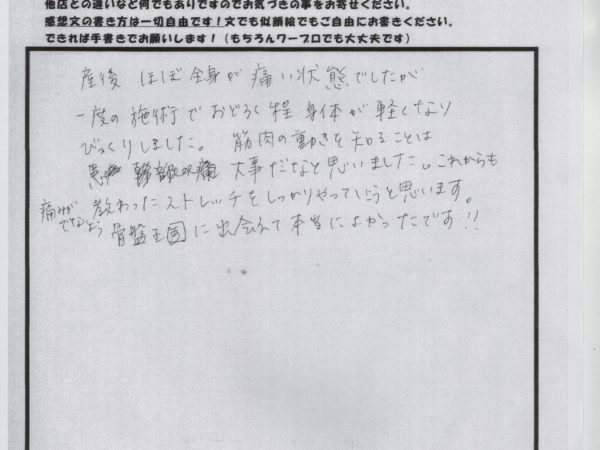 他店との違いなど何でもありですのでお気づきの事をお寄せください。
感想文の書き方は一切自由です！文でも似顔絵でもご自由にお書きください。
できれば手書きでお願いします！（もちろんワープロでも大丈夫です）
産後 ほぼ全身が痛い状態でしたが
一度の施術でおどろく程 身体が軽くなり
びっくりしました。 筋肉の動きを知ることは
大事だなと思いました。これからも
痛みがでないよう 教わったストレッチをしっかりやっていこうと思います。
骨盤王国に出会えて本当によかったです!!